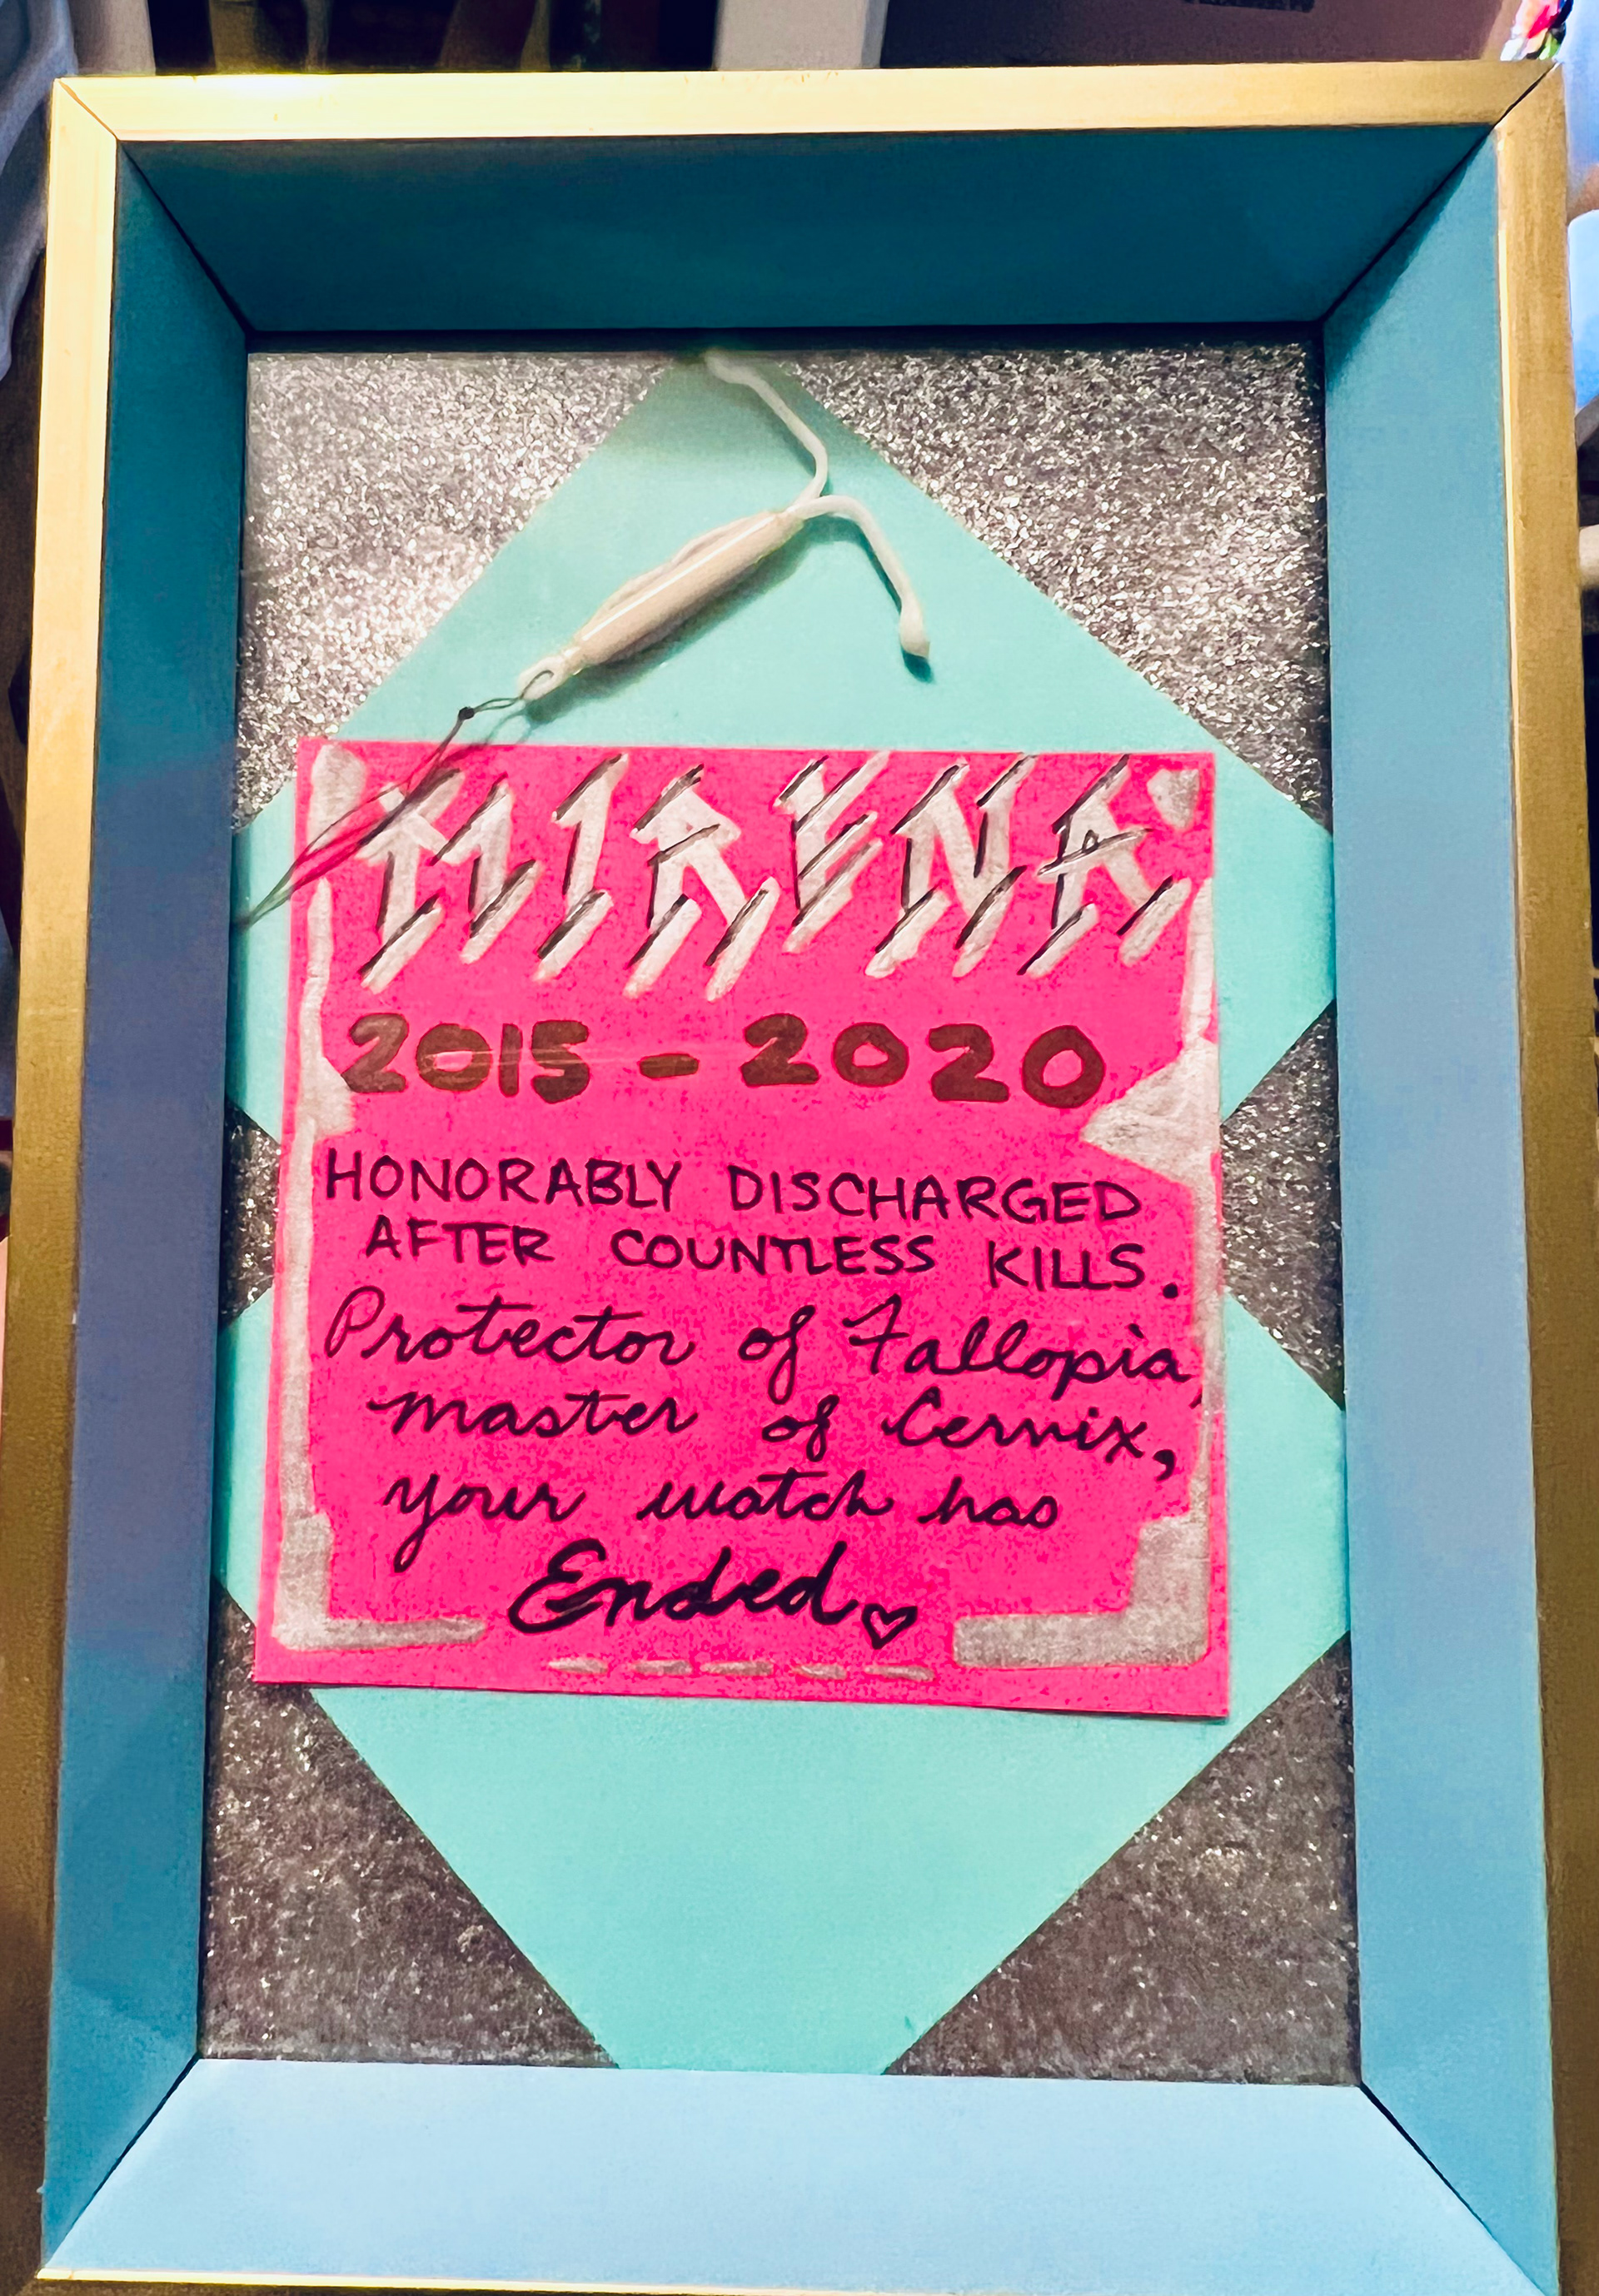 MIRENA
2015 - 2020
HONORABLY DISCHARGED
AFTER COUNTLESS KILLS.
Protector of Fallopia,
master of Cervix,
your watch has
Ended